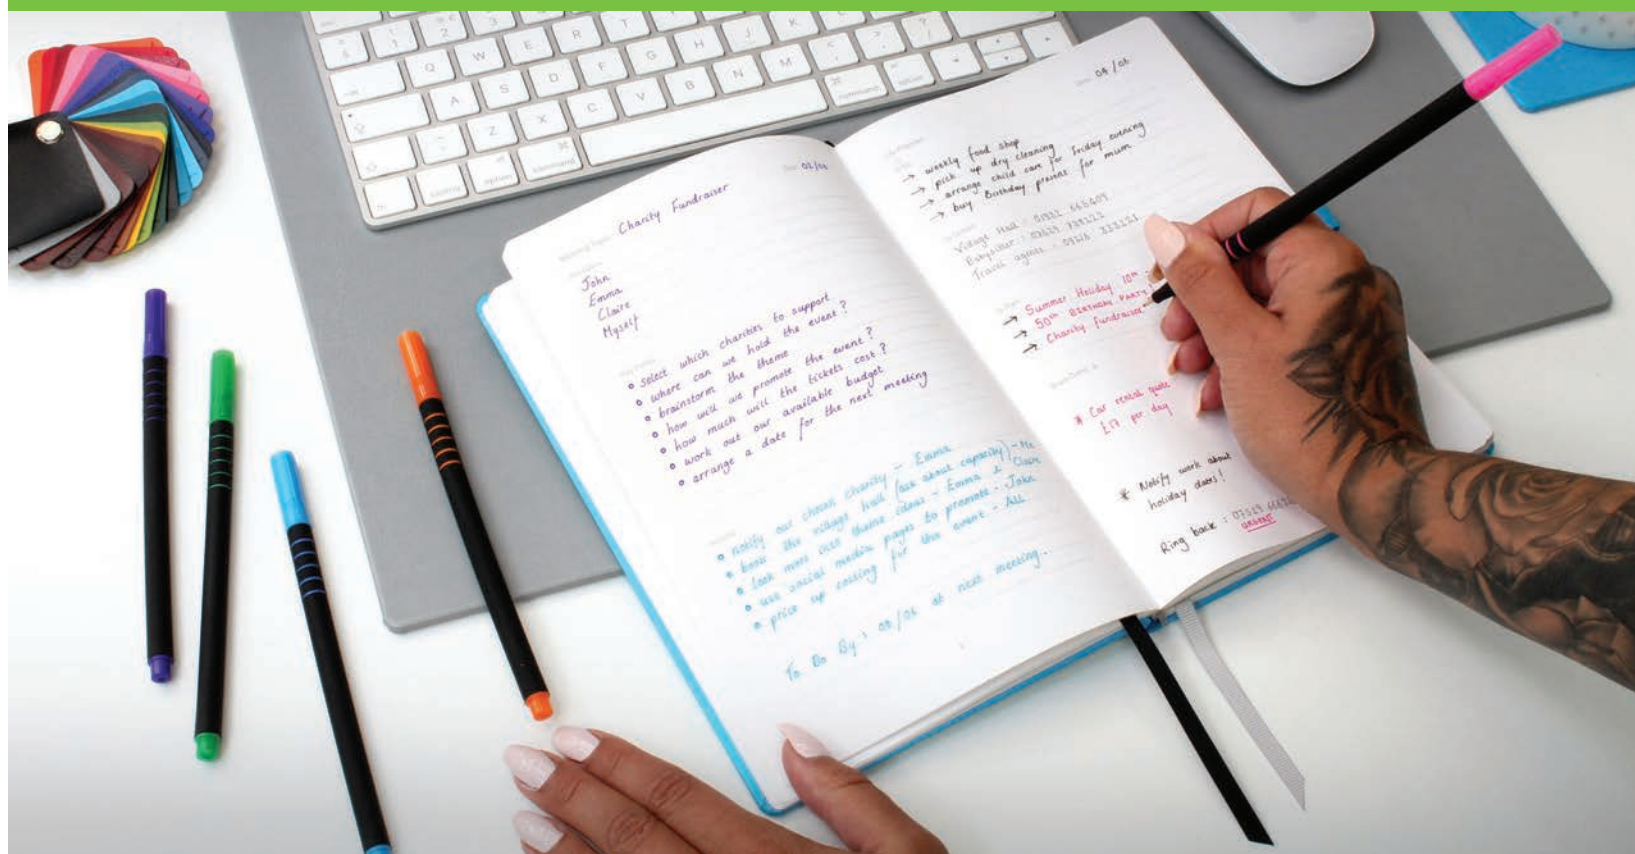 02/06
Charity Fundraiser
John
Emma
Claire
Myself
• select which charities to support
• where can we hold the event?
• brainstorm the theme
• how will we promote the event?
• how much will the tickets cost?
• work out our available budget
• arrange a date for the next meeting
• notify our chosen charity - Emma
• book the village hall (ask about capacity) - Me
• look more into theme ideas - Emma & Claire
• use social media pages to promote - John
• price up costing for the event - All
To Do By: 08/06 at next meeting.
08/06
→ weekly food shop
→ pick up dry cleaning
→ arrange child care for Friday evening
→ buy Birthday present for mum
Village Hall :
Babysitter :
Travel agent :
→ Summer Holiday 10th
→ 50th BIRTHDAY PARTY
→ Charity Fundraiser
* Car rental quote
£17 per day
* Notify work about
holiday dates!
Ring back :
URGENT
Q W E R T
A S D F G H J K L
Z X C V B N M
control option command
command option